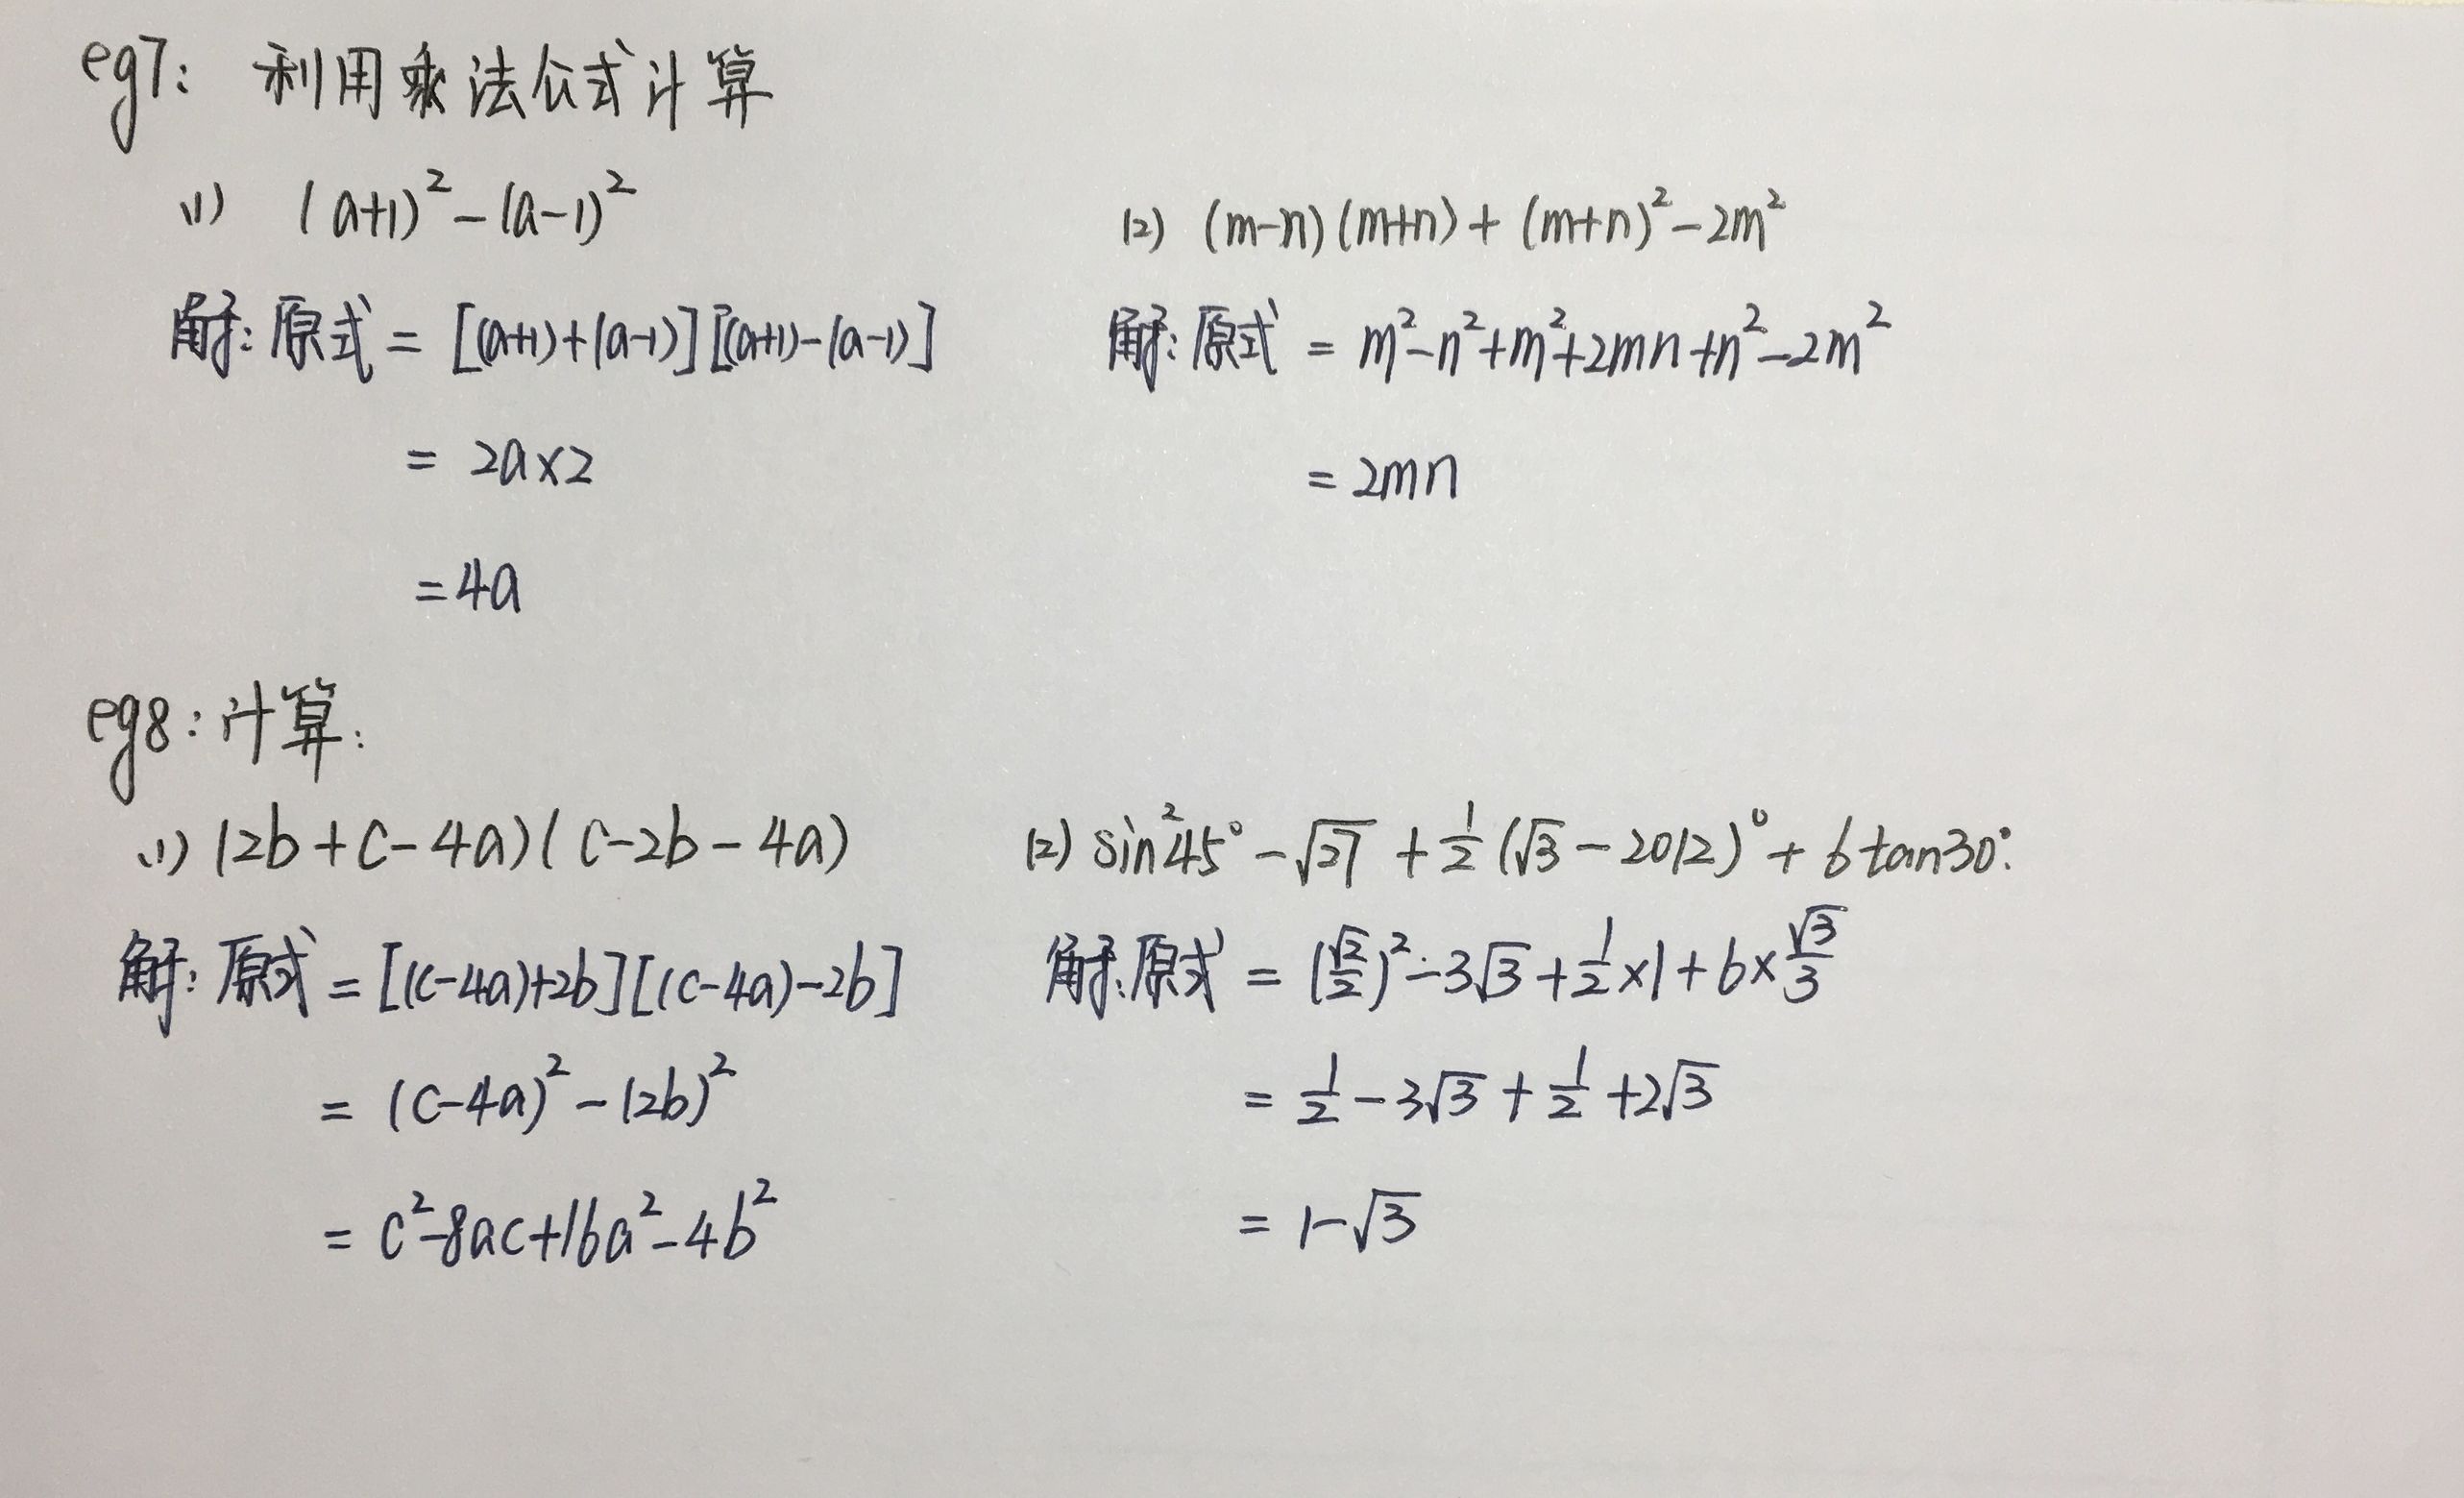 eg7: 利用乘法公式计算
(1) (a+1)²-(a-1)²
解: 原式 = [(a+1)+(a-1)][(a+1)-(a-1)]
= 2a×2
=4a
(2) (m-n)(m+n)+(m+n)²-2m²
解: 原式 = m²-n²+m²+2mn+n²-2m²
= 2mn
eg8: 计算:
(1) (2b+c-4a)(c-2b-4a)
解: 原式 = [(c-4a)+2b][(c-4a)-2b]
= (c-4a)²-(2b)²
= c²-8ac+16a²-4b²
(2) sin²45°-√27+1/2(√3-2012)⁰+6tan30°.
解:原式 = (√2/2)²-3√3+1/2×1+6×√3/3
= 1/2-3√3+1/2+2√3
= 1-√3